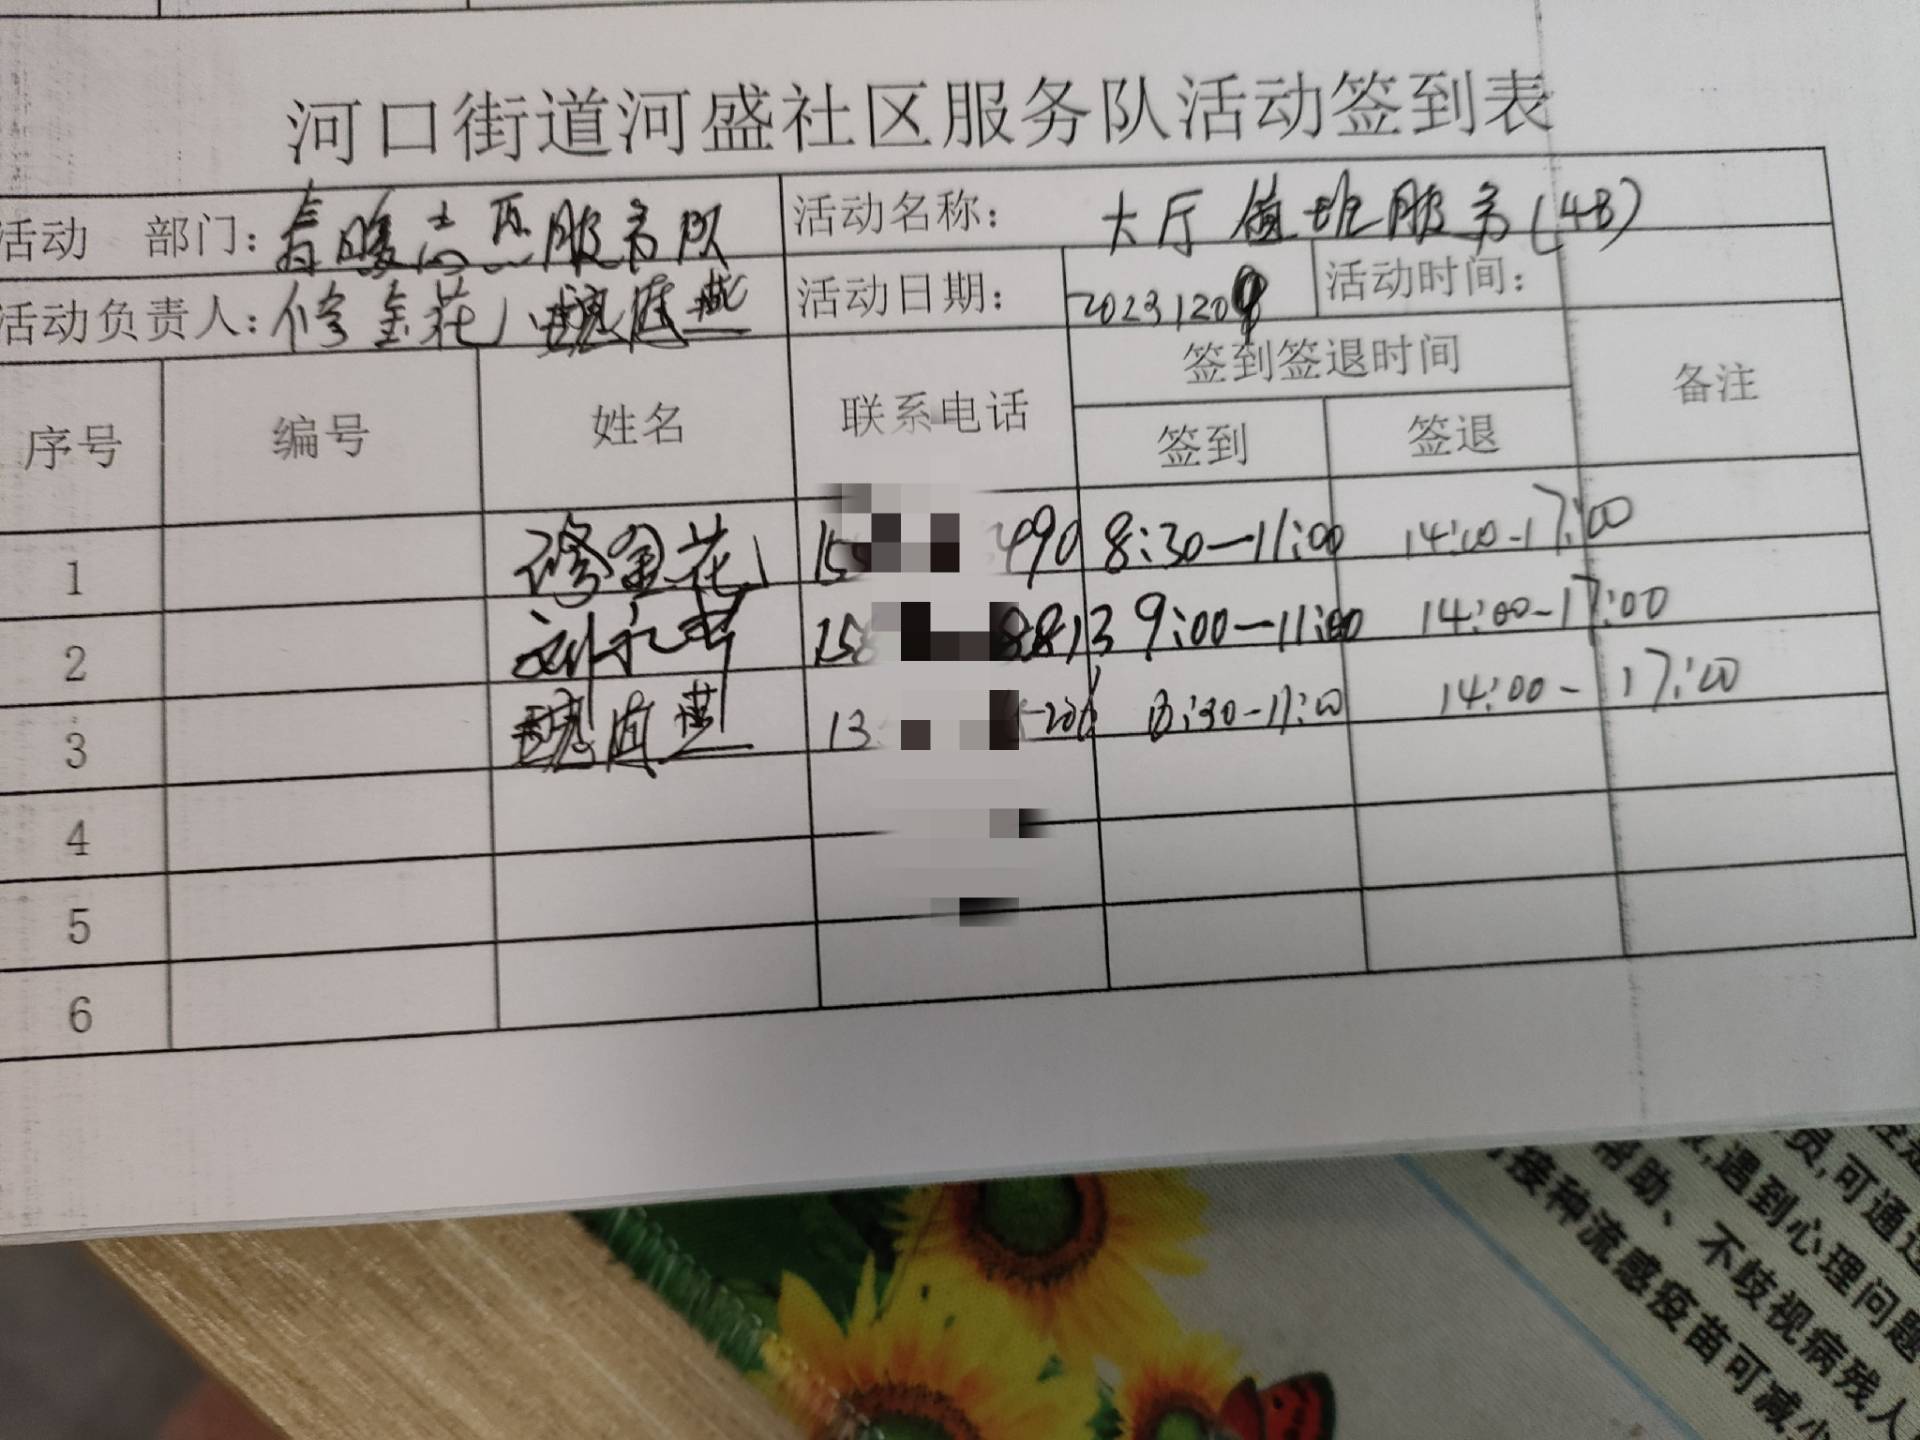 河口街道河盛社区服务队活动签到表
活动 部门: 服务队 活动名称: 大厅值班服务(4B)
活动负责人: 修金花、魏庭燕 活动日期: 20231209 活动时间:
序号 编号 姓名 联系电话 签到签退时间 备注
签到 签退
1 修金花 15 490 8:30—11:00 14:00-17:00
2 刘永 158 8813 9:00—11:00 14:00-17:00
3 魏庭燕 13 8:30-11:00 14:00-17:00
4
5
6
员,可通过
,遇到心理问题
帮助、不歧视病残人
接种流感疫苗可减少